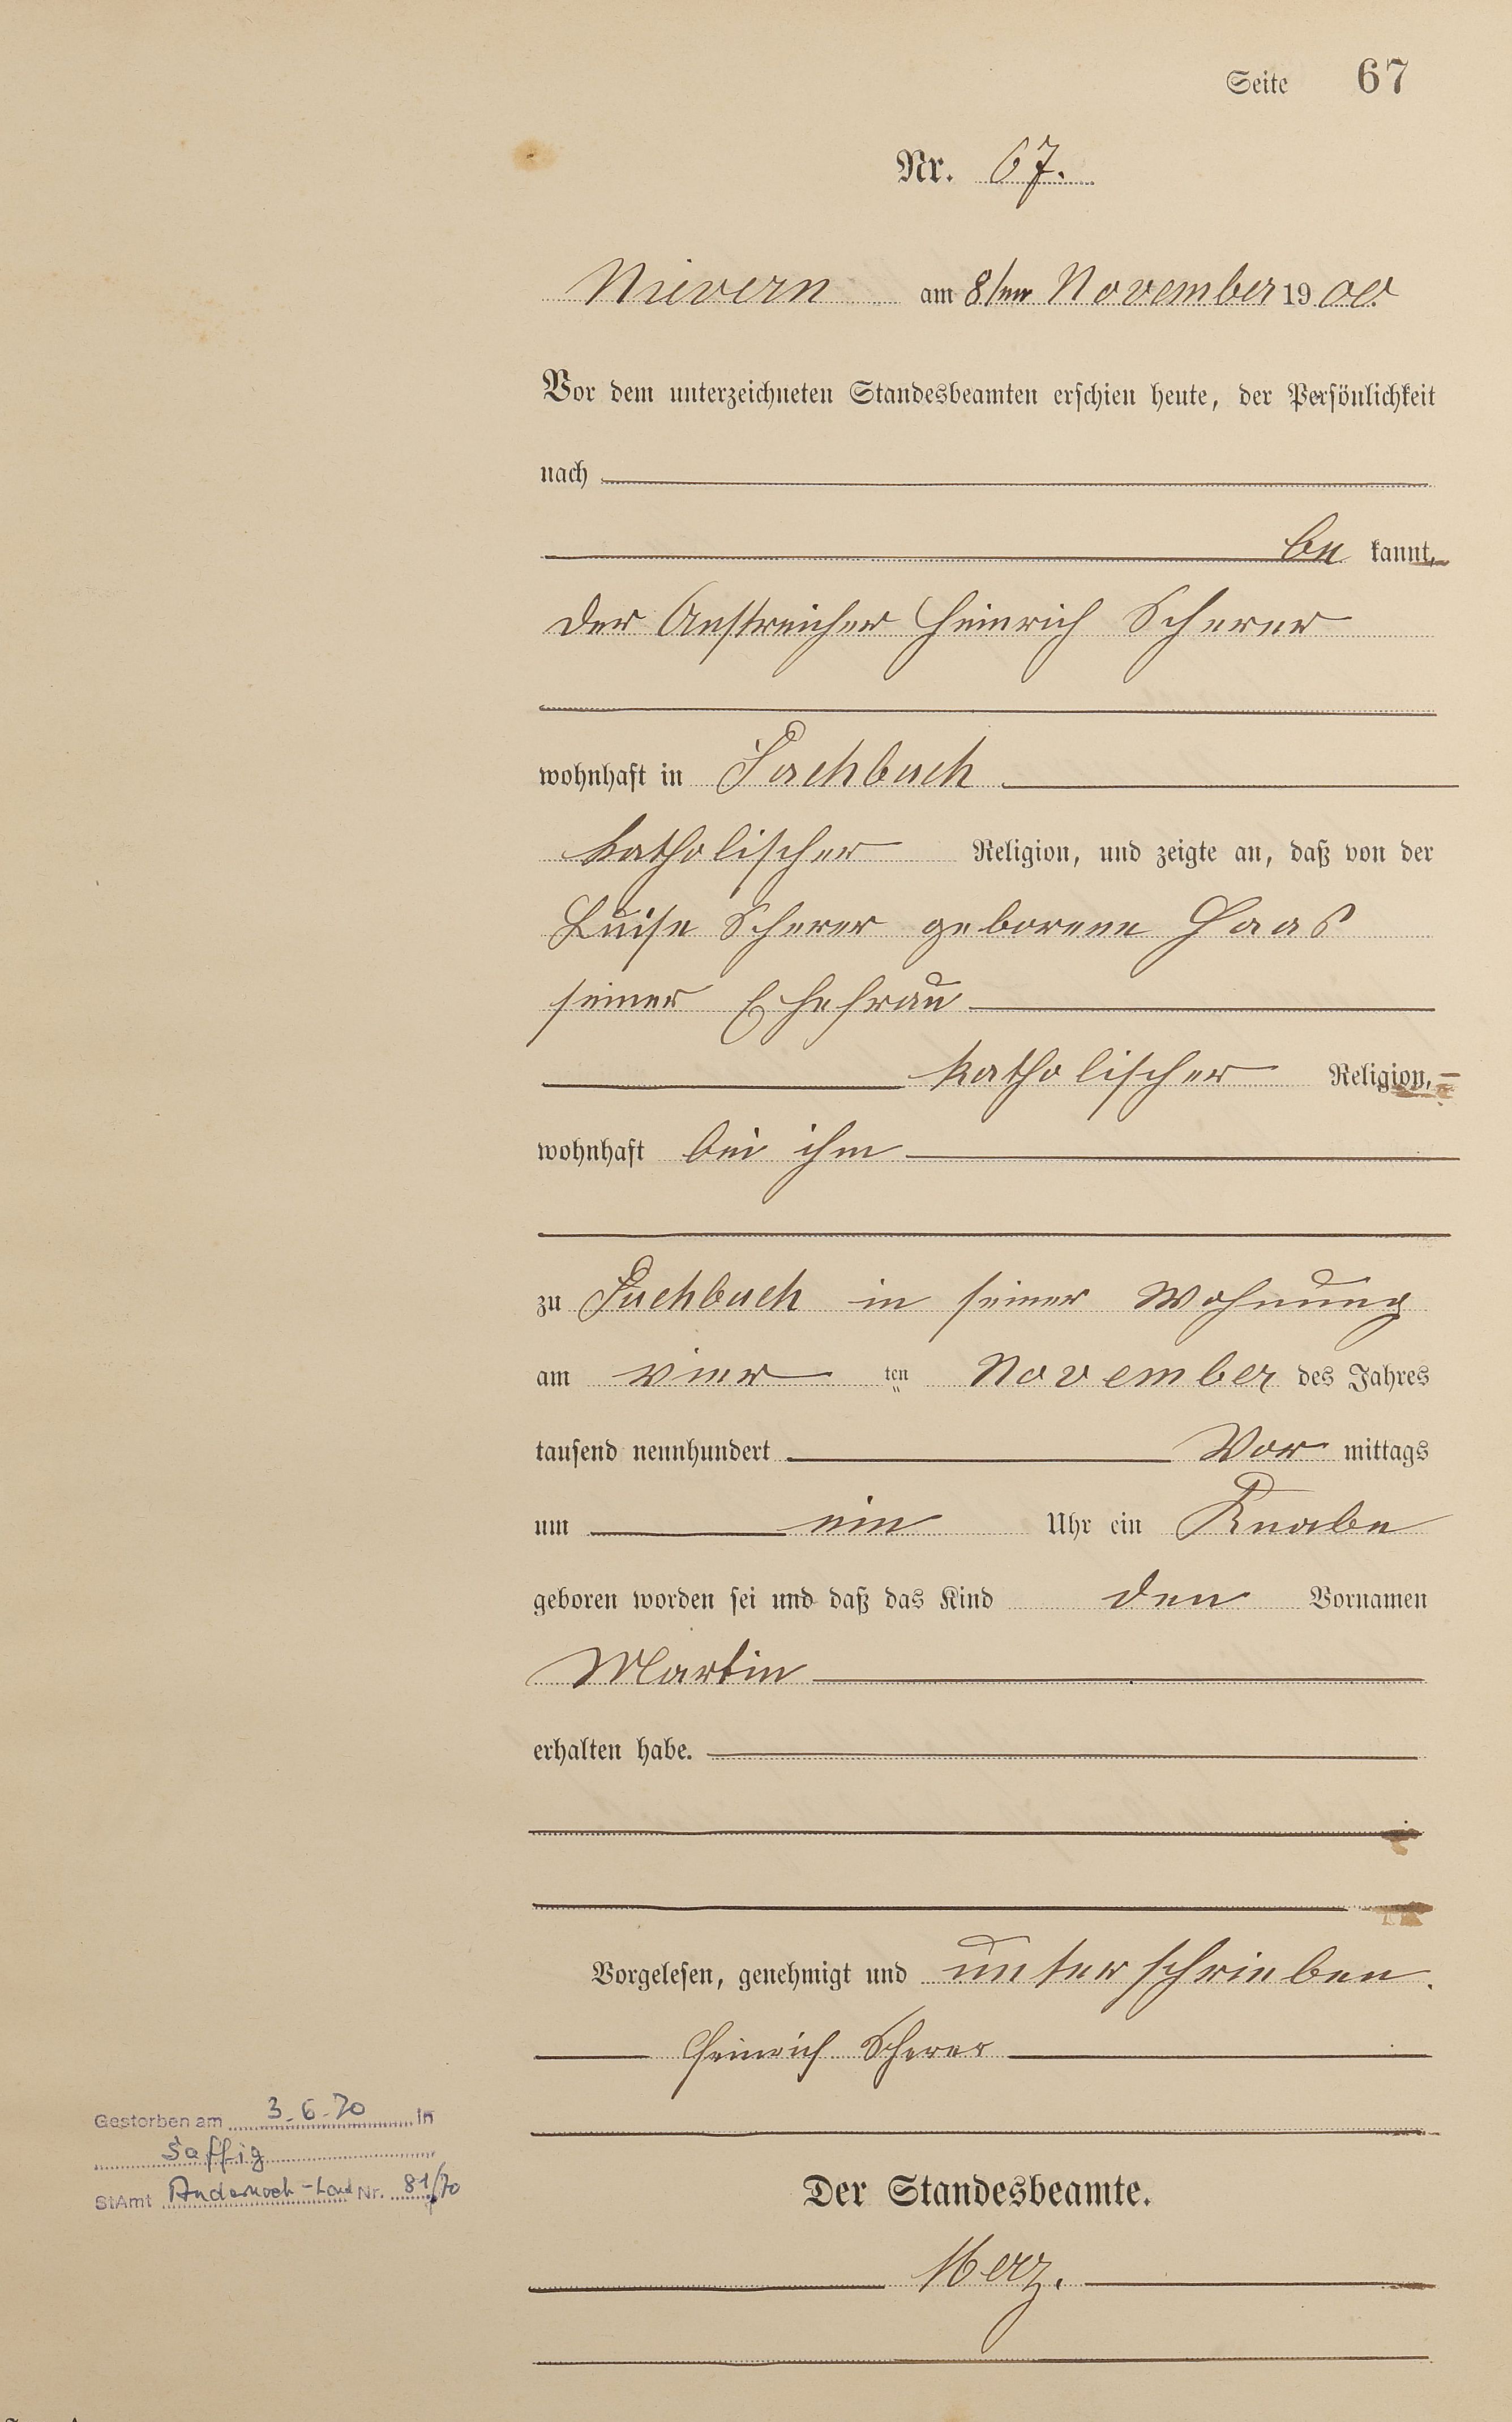 Seite 67
Nr. 67.
Nievern am 8ten November 1900
Vor dem unterzeichneten Standesbeamten erschien heute, der Persönlichkeit
nach
be kannt,
der Anstreicher Heinrich Scherer
wohnhaft in Fachbach
katholischer Religion, und zeigte an, daß von der
Luise Scherer geborene Haas
seiner Ehefrau
katholischer Religion,
wohnhaft bei ihm
zu Fachbach in seiner Wohnung
am vier ten November des Jahres
tausend neunhundert Vor mittags
um ein Uhr ein Knabe
geboren worden sei und daß das Kind den Vornamen
Martin
erhalten habe.
Vorgelesen, genehmigt und unterschrieben.
Heinrich Scherer
Gestorben am 3.6.70 in
Saffig
StAmt Andernach-Land Nr. 81/70
Der Standesbeamte.
Herz.